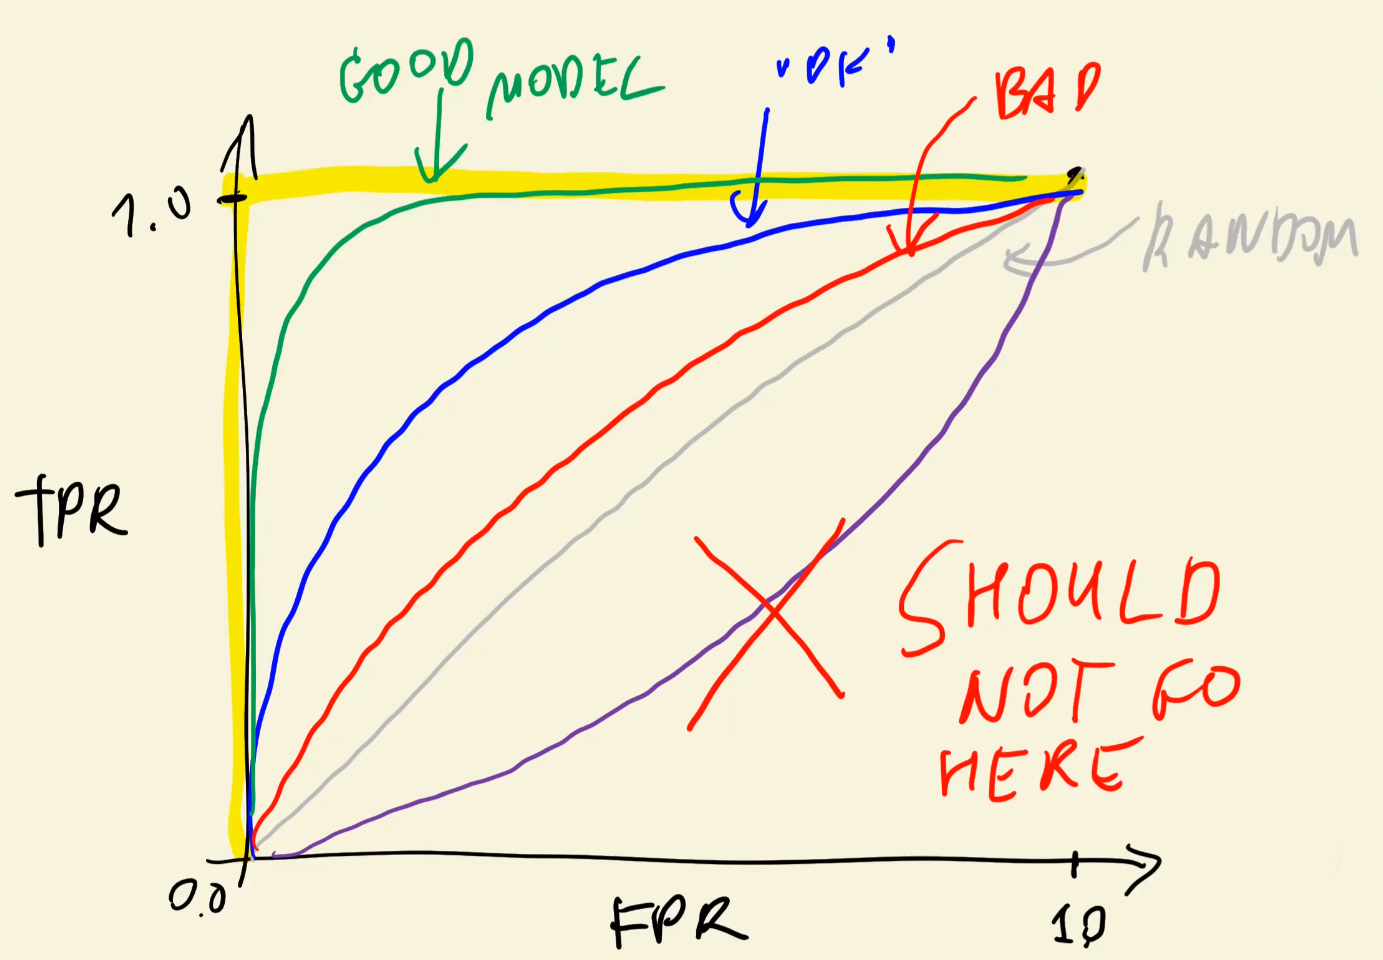 GOOD MODEL
"OK"
BAD
1.0
RANDOM
TPR
SHOULD
NOT GO
HERE
0.0
FPR
10